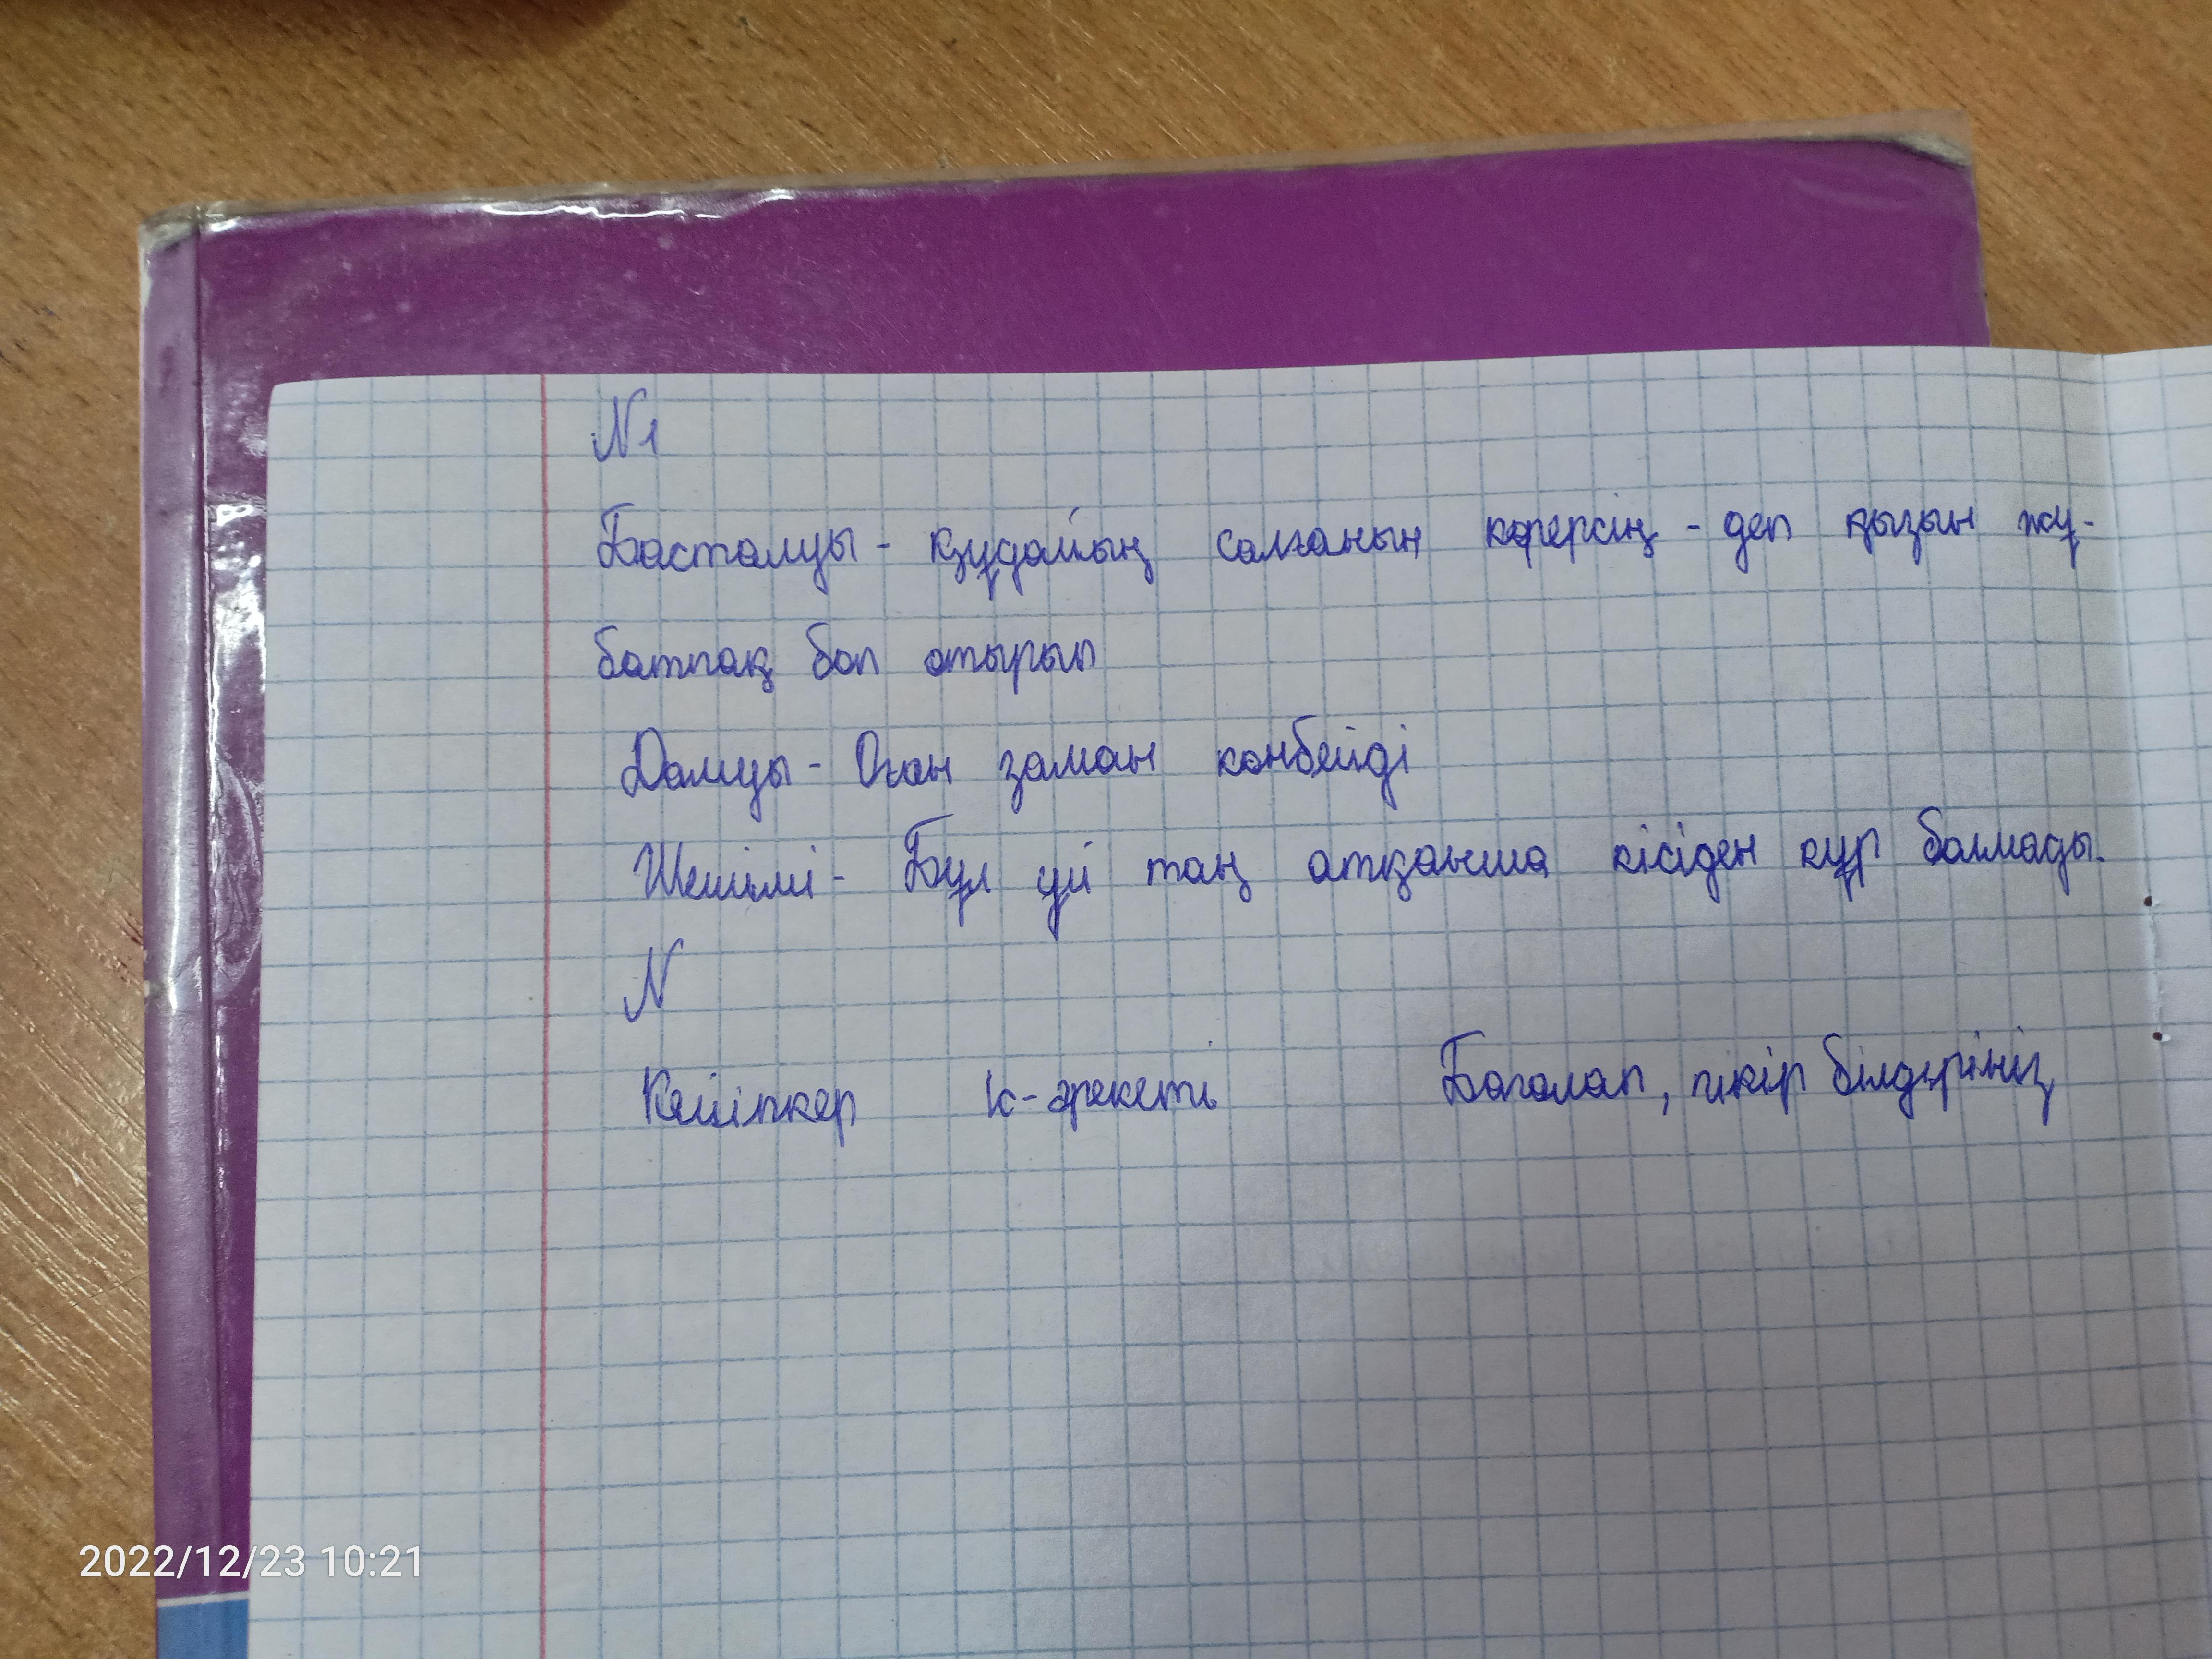 N1
Басталуы - құдайың салғанын көрерсің - деп қызын жұ-
батпақ боп отырып
Дамуы - Оған заман көнбейді
Шешімі - Бұл үй таң атқанша кісіден құр болмады.
N
Кейіпкер Іс-әрекеті Бағалап, пікір білдіріңіз
2022/12/23 10:21